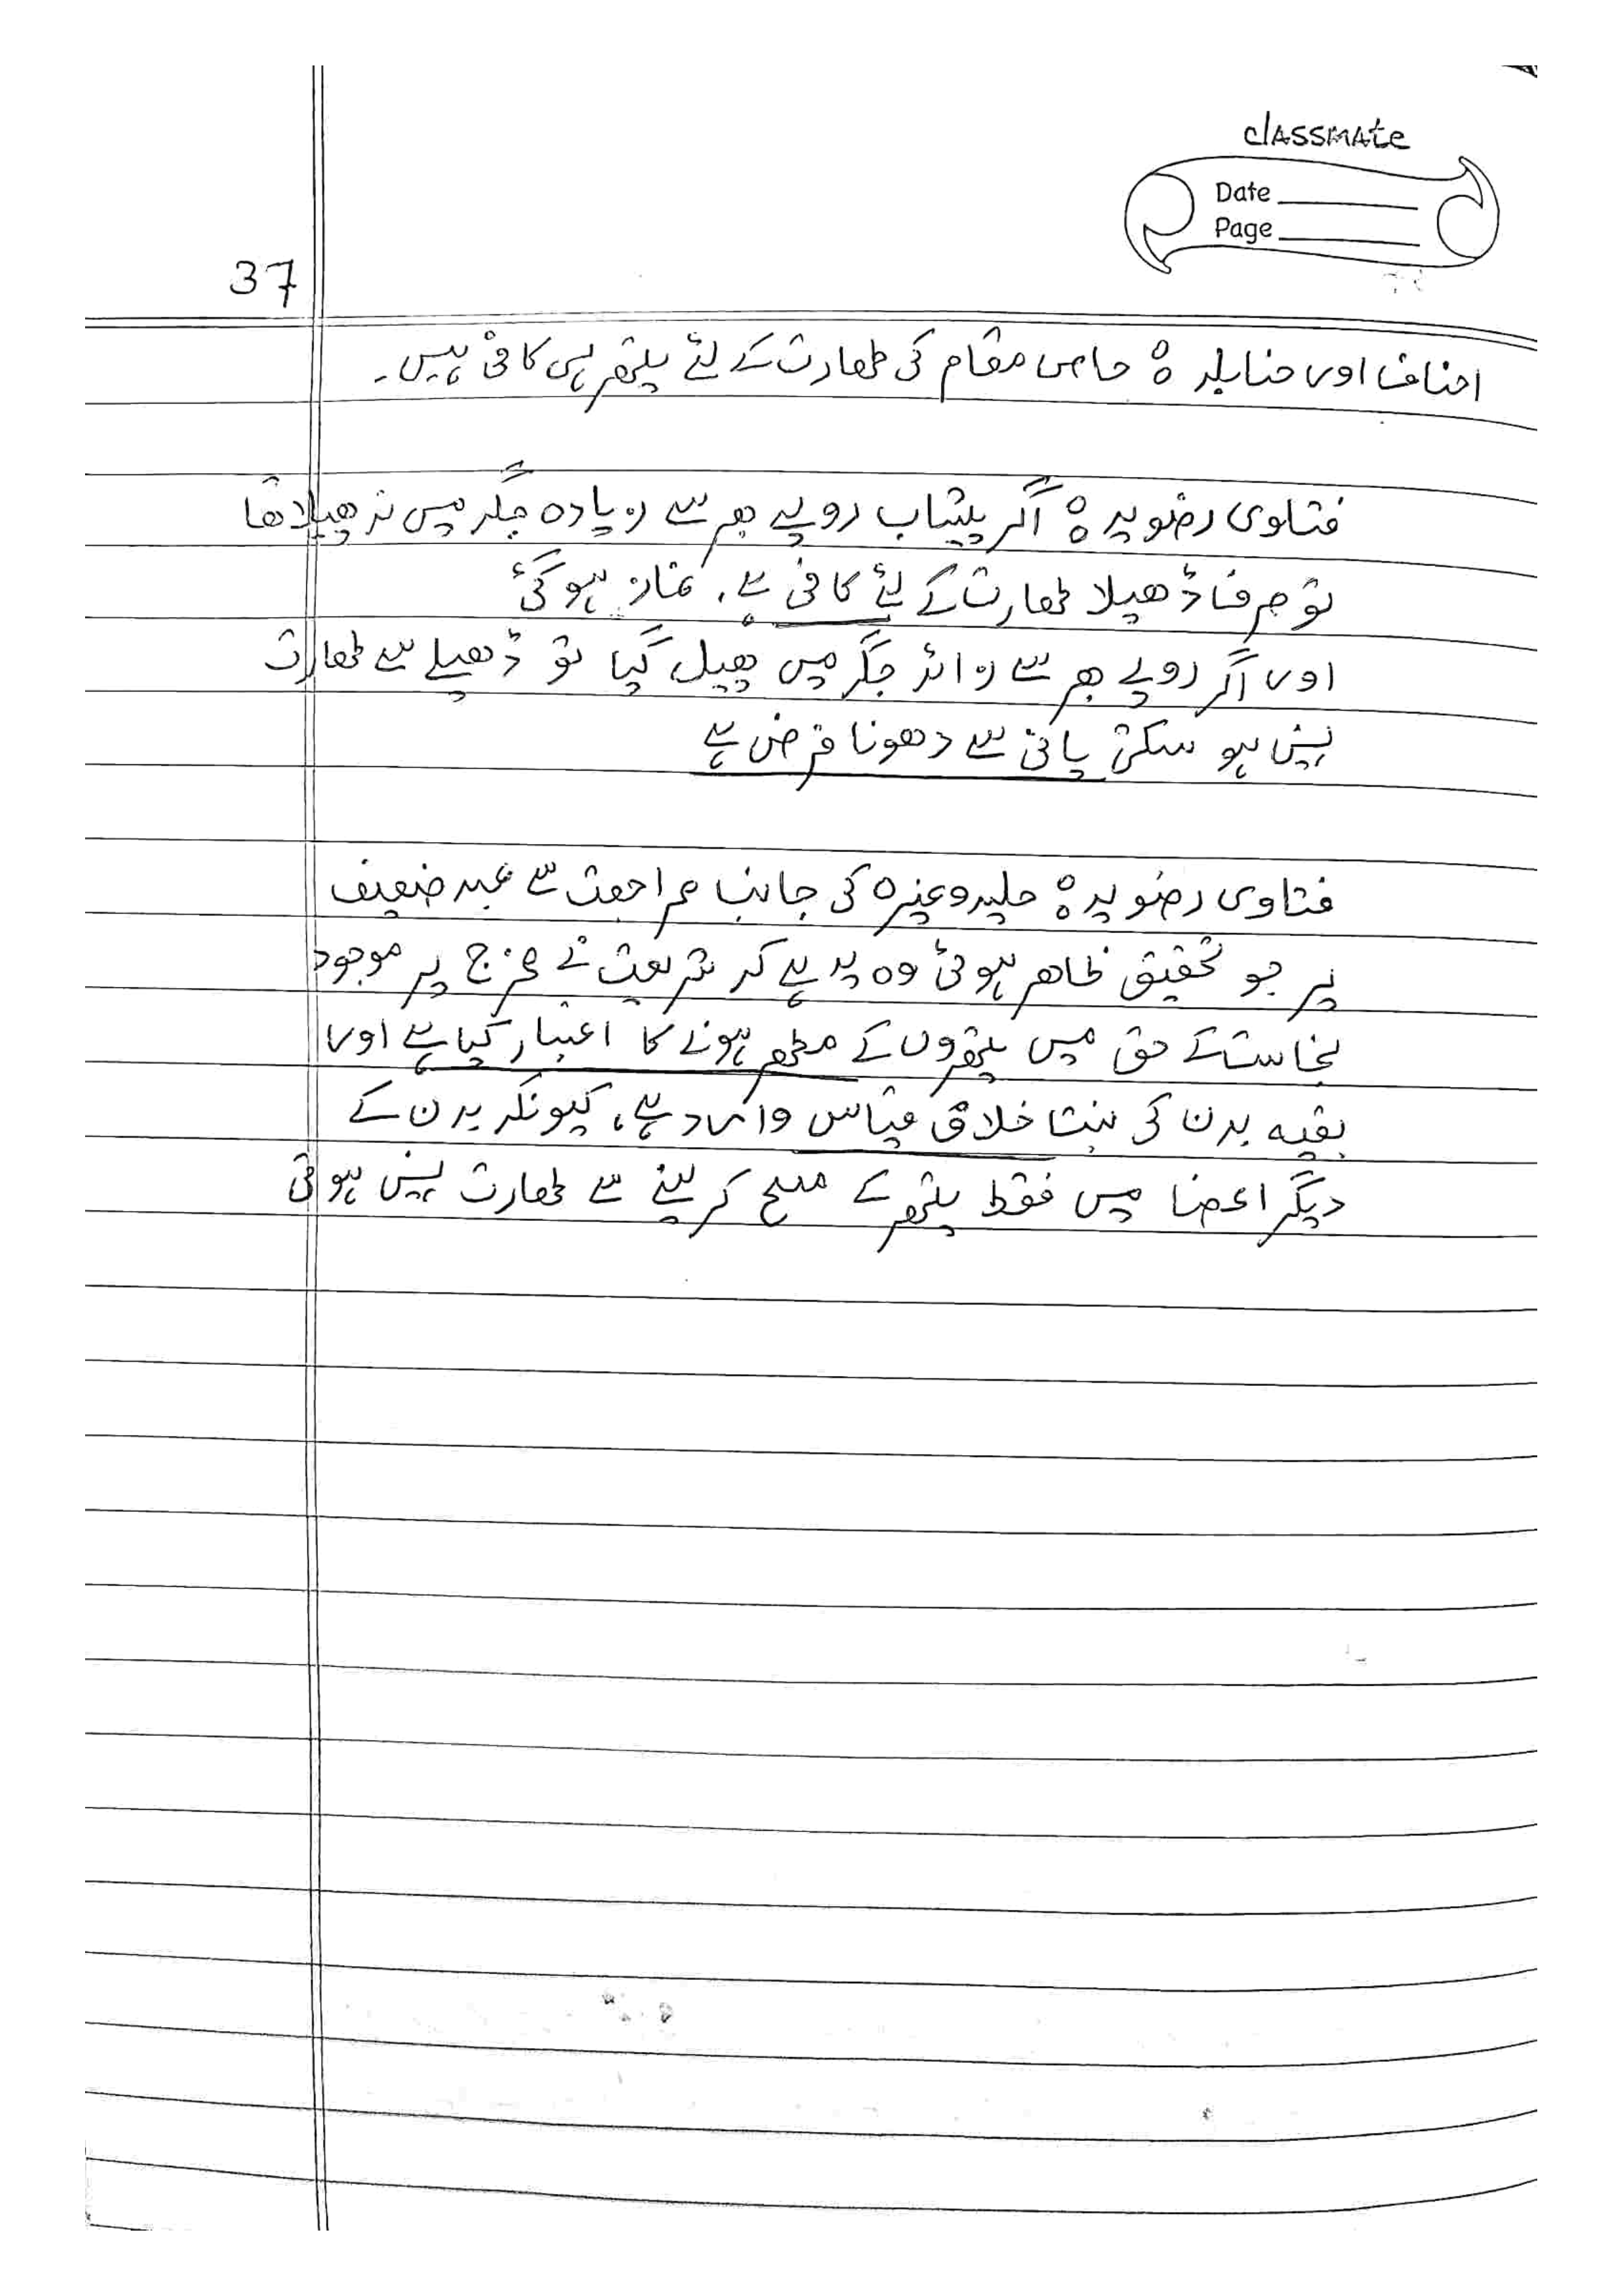 classmate
Date
Page
37
احناف اور حنابلہ ° خاص مقام کی طھارت کے لئے پتھر ہی کافی ہیں۔
فتاوی رضویہ ° اگر پیشاب روپے بھر سے زیادہ جگہ میں نہ پھیلا تھا
تو صرف ڈھیلا طھارت کے لئے کافی ہے، نماز ہو گئی
اور اگر روپے بھر سے زائد جگہ میں پھیل گیا تو ڈھیلے سے طھارت
نہیں ہو سکتی پانی سے دھونا فرض ہے
فتاوی رضویہ ° حلیہ وغیرہ کی جانب مراجعت سے عبد ضعیف
پر جو تحقیق ظاھر ہوئی وہ یہ ہے کہ شریعت نے مخرج پر موجود
نجاست کے حق میں پتھروں کے مطھر ہونے کا اعتبار کیا ہے اور
بقیہ بدن کی نسبت خلاف قیاس وارد ہے، کیونکہ بدن کے
دیگر اعضا میں فقط پتھر کے مسح کر لینے سے طھارت نہیں ہوتی